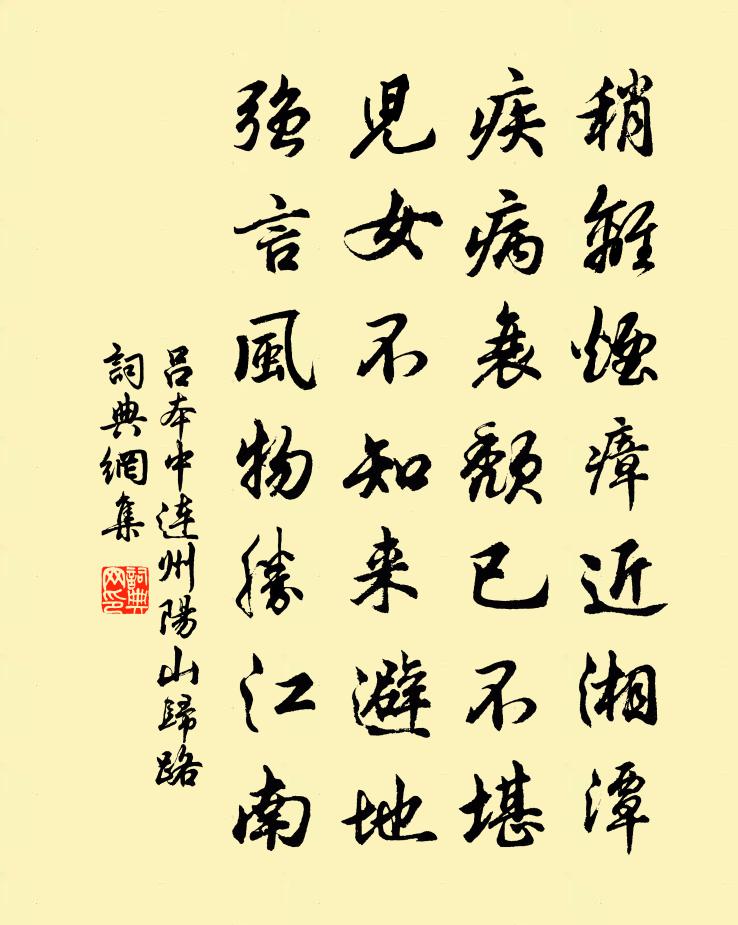 稍離煙瘴近湘潭
疾病衰頹已不堪
兒女不知来避地
強言風物勝江南
吕本中連州陽山歸路
詞典網集
詞典网印